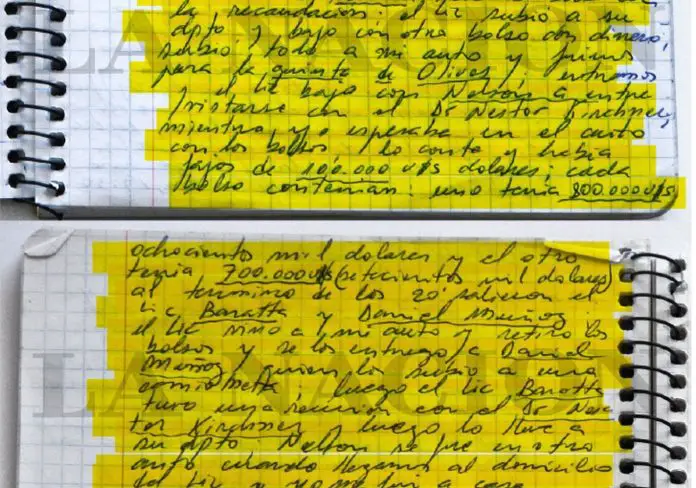 la recaudacion: el Lic subio a su
dpto y bajo con otro bolso con dinero,
subio todo a mi auto y fuimos
para la quinta de Olivos, entramos
y el Lic bajo con Nelson a entre
/vistarse con el Dr Nestor Kirchner,
mientras yo esperaba en el auto
con los bolsos, lo conte y habia
fajos de 100.000 u$s dolares, cada
bolso contenian: uno tenia 800.000 u$s
ochocientos mil dolares y el otro
tenia 700.000 u$s (setecientos mil dolares)
al termino de los 20' salieron el
Lic Baratta y Daniel Muñoz
el Lic vino a mi auto y retiro los
bolsos y se los entrego a Daniel
Muñoz, quien los subio a una
camioneta, luego el Lic Baratta
tuvo una reunion con el Dr Nes
tor Kirchner y luego lo lleve a
su dpto. Nelson se fue en otro
auto cuando llegamos al domicilio
del Lic y yo me fui a casa
LA NACION
LA NACION